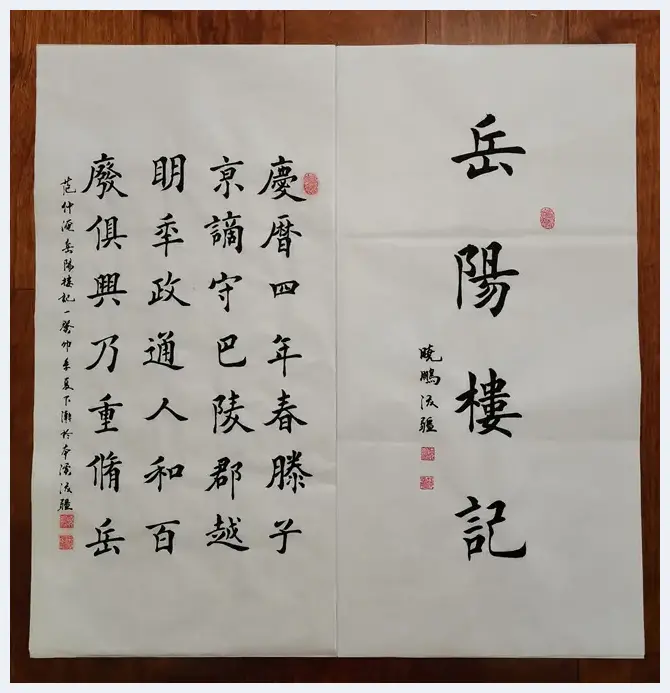 岳陽樓記
曉鵬
慶曆四年春滕子
京謫守巴陵郡越
明秊政通人和百
廢俱興乃重脩岳
范仲淹岳陽樓記一癸卯季夏下澣於